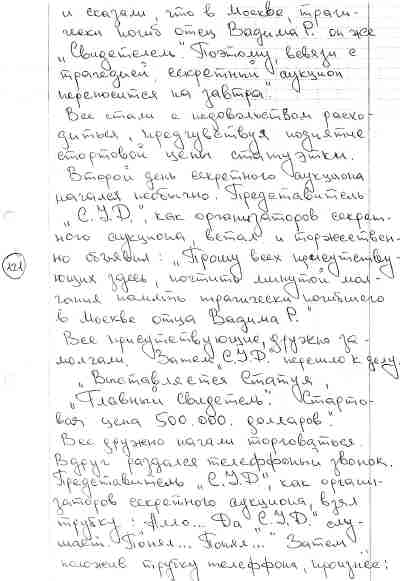 и сказали, что в Москве, траги-
чески погиб отец Вадима Р. он же
„Свидетелем". Поэтому, всвязи с
трагедией, секретный аукцион
переносится на завтра".
Все стали с недовольством расхо-
диться, предчувствуя поднятие
стартовой цены статуэтки.
Второй день секретного аукциона
начался необычно. Представитель
„С.I.D.", как организаторов секрет-
ного аукциона, встал и торжествен-
но объявил: „Прошу всех присутству-
ющих здесь, почтить минутой мол-
чания память трагически погибшего
в Москве отца Вадима Р."
Все присутствующие, дружно за-
молчали. Затем „С.I.D." перешло к делу.
„Выставляется Статуя,
„Главный Свидетель". Старто-
вая цена 500.000. долларов".
Все дружно начали торговаться.
Вдруг раздался телеффонный звонок.
Представитель „С.I.D.", как органи-
заторов секретного аукциона, взял
трубку: Алло... Да „С.I.D." слу-
шает. Понял... Понял..." Затем
положив трубку телеффона, произнес:
121